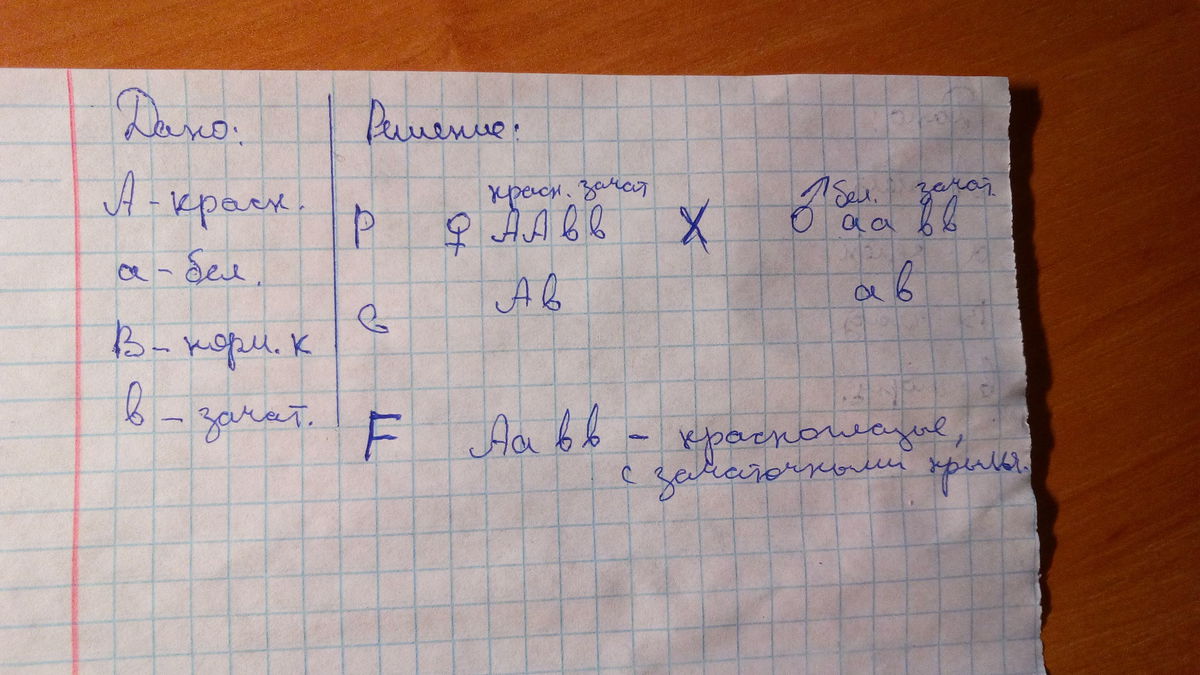 Дано:
А - красн.
а - бел.
В - норм. к
в - зачат.
Решение:
красн. зачат бел. зачат.
Р ♀ ААвв X ♂ аа вв
G Ав ав
F Аа вв - красноглазые,
с зачаточными крыльи.